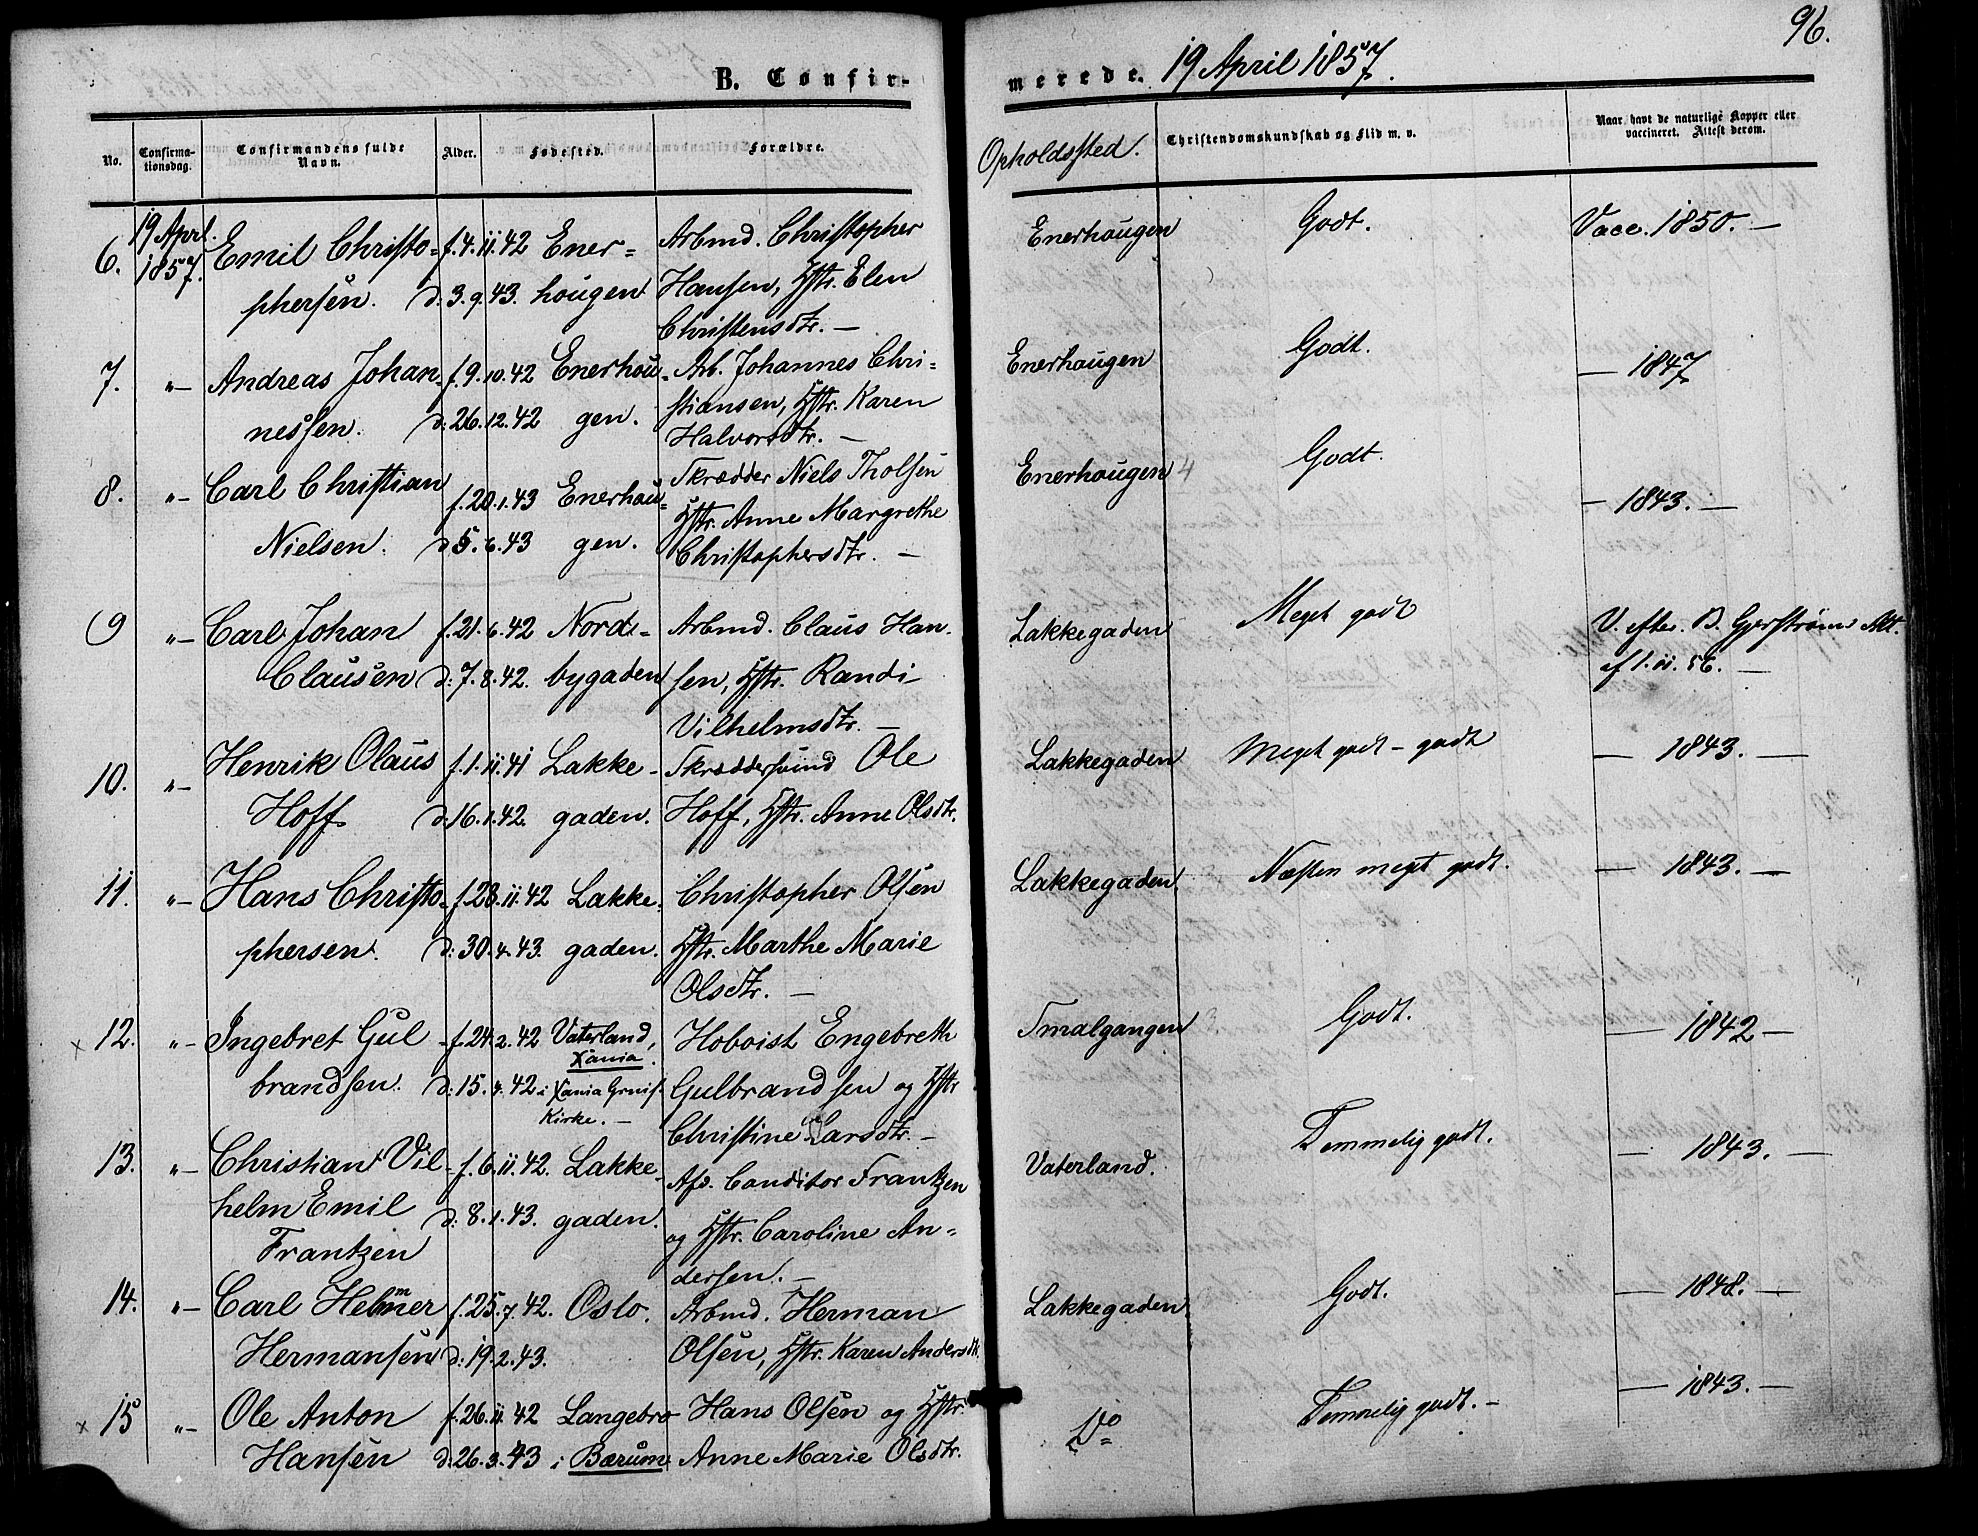 96.
B. Confirmerede. 19 April 1857.
No. Confirmationsdag. Confirmandens fulde Navn. Alder. Fødested. Forældre. Opholdssted. Christendomskundskab og Flid m. v. Naar havt de naturlige Kopper eller vaccineret. Attest derom.
6. 19 April. 1857. Emil Christo= f. 4. 11. 42 Ener= Arbmd. Christopher Enerhougen Godt. Vacc. 1850. —
phersen. d: 3. 9. 43. hougen Hansen, Hstr. Elen
Christensdtr. —
7. "– Andreas Johan= f. 9. 10. 42 Enerhou= Arb. Johannes Chri= Enerhaugen Godt. — 1847
nessen. d: 26. 12. 42 gen. stiansen, Hstr. Karen
Halvorsdtr. —
8. "– Carl Christian f. 20. 1. 43 Enerhou= Skrædder Niels Tholsen Enerhougen 4 Godt. — 1843. —
Nielsen. d: 5. 6. 43 gen. Hstr. Anne Margrethe
Christophersdtr. —
9 "– Carl Johan f. 21. 6. 42 Nord= Arbmd. Claus Han= Lakkegaden Meget godt V. efter. B. Att.
Clausen d: 7. 8. 42. bygaden sen, Hstr. Randi af 1. 11. 56. —
Vilhelmsdtr. —
10. "– Henrik Olaus f. 1. 11. 41 Lakke= Skrædersvend Ole Lakkegaden Meget godt – godt — 1843. —
Hoff d: 16. 1. 42. gaden. Hoff, Hstr. Anne Olsdtr.
11. "– Hans Christo= f. 28. 11. 42 Lakke= Christopher Olsen Lakkegaden Næsten meget godt. — 1843. —
phersen. d: 30. 4. 43. gaden. Hstr. Marthe Marie
Olsdtr. —
x 12. "– Ingebret Gul= f. 24. 2. 42 Vaterland, Hoboist Engebreth Smalgangen Godt. — 1842 —
Xania.
brandsen. d: 15. 4. 42 i Xania Grnis. Gulbrandsen og Hstr
Kirke. — Christine Larsdtr. —
13. "– Christian Vil= f. 6. 11. 42. Lakke= Afd. Conditor Frantzen Vaterland. Temmelig godt. — 1843. —
helm Emil d: 8. 1. 43. gaden. og Hstr. Caroline An=
Frantzen dersen. —
14. "– Carl Helmer f. 25. 7. 42. Oslo. Arbmd. Herman Lakkegaden Godt. — 1848. —
Hermansen d: 19. 2. 43. Olsen, Hstr. Karen Andersdtr.
x 15 "– Ole Anton f. 26. 11. 42 Langebro Hans Olsen og Hstr. Do Temmelig godt. – — 1843. —
Hansen d: 26. 3. 43 i Bærum. Anne Marie Olsdtr.